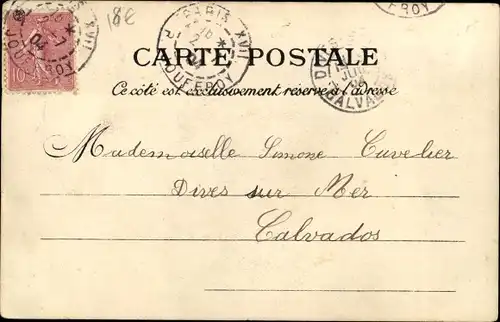 18€
PARIS XVII
R. JOUFFROY
04
10
CARTE POSTALE
Ce côté est exclusivement réservé à l'adresse
CALVADOS
Mademoiselle Simone Cuvelier
Dives sur Mer
Calvados